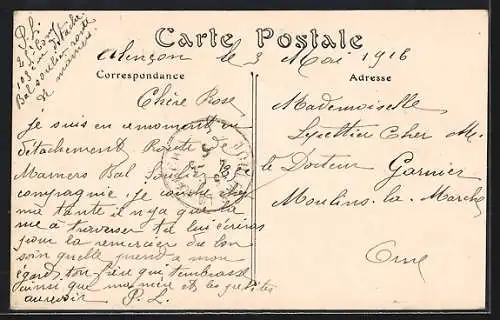 P. L.
2è Comp
103 détaché
Bal soulier route
de mamers
Carte Postale
Alençon le 3 Mai 1916
Correspondance
Adresse
Chère Rose
je suis en ce moment en
détachement Route de
Mamers Bal Soulier 2e
compagnie. je couche chez
ma tante il n'y a que la
rue a traverser tu lui écriras
pour la remercier du bon
soin quelle prend a mon
égard ton frère qui t'embrasse
ainsi que ma mère et les petites
au revoir P. L.
Mademoiselle
Lycettier Cher M.
le Docteur Garnier
Moulins. la. Marche
Orne